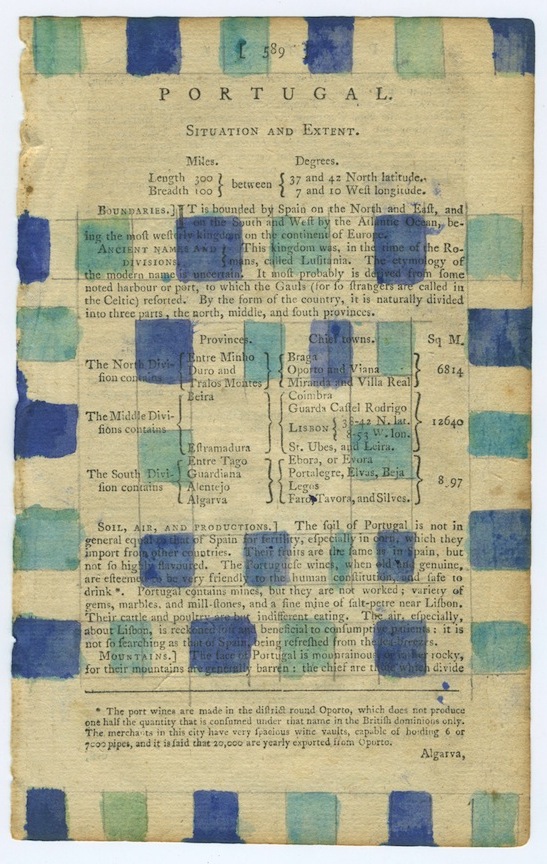 [ 589
PORTUGAL.
SITUATION AND EXTENT.
Miles. Degrees.
Length 300 } between { 37 and 42 North latitude.
Breadth 100 } { 7 and 10 West longitude.
BOUNDARIES.] IT is bounded by Spain on the North and East, and
on the South and West by the Atlantic Ocean, be-
ing the most westerly kingdom on the continent of Europe.
ANCIENT NAMES AND } This kingdom was, in the time of the Ro-
DIVISIONS, { mans, called Lusitania. The etymology of
the modern name is uncertain. It most probably is derived from some
noted harbour or port, to which the Gauls (for so strangers are called in
the Celtic) resorted. By the form of the country, it is naturally divided
into three parts, the north, middle, and south provinces.
Provinces. Chief towns. Sq M.
The North Divi-
sion contains { Entre Minho
Duro and
Tralos Montes } { Braga
Oporto and Viana
Miranda and Villa Real } 6814
The Middle Divi-
sions contains { Beira
Estramadura } { Coimbra
Guarda Castel Rodrigo
LISBON { 38-42 N. lat.
8-53 W. lon.
St. Ubes, and Leira. } 12640
The South Divi-
sion contains { Entre Tago
Guardiana
Alentejo
Algarva } { Ebora, or Evora
Portalegre, Elvas, Beja
Legos
Faro, Tavora, and Silves. } 8 97
SOIL, AIR, AND PRODUCTIONS.] The soil of Portugal is not in
general equal to that of Spain for fertility, especially in corn, which they
import from other countries. Their fruits are the same as in Spain, but
not so highly flavoured. The Portuguese wines, when old and genuine,
are esteemed to be very friendly to the human constitution, and safe to
drink *. Portugal contains mines, but they are not worked; variety of
gems, marbles, and mill-stones, and a fine mine of salt-petre near Lisbon.
Their cattle and poultry are but indifferent eating. The air, especially,
about Lisbon, is reckoned soft and beneficial to consumptive patients; it is
not so searching as that of Spain, being refreshed from the sea-breezes.
MOUNTAINS.] The face of Portugal is mountainous, or rather rocky,
for their mountains are generally barren: the chief are those which divide
* The port wines are made in the district round Oporto, which does not produce
one half the quantity that is consumed under that name in the British dominions only.
The merchants in this city have very spacious wine vaults, capable of holding 6 or
7000 pipes, and it is said that 20,000 are yearly exported from Oporto.
Algarva,